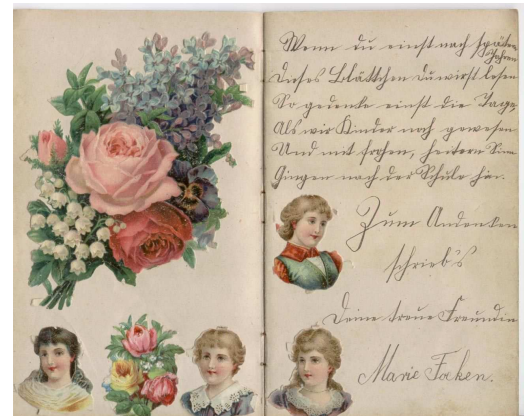 Wenn du einst nach späten Jahren
Dieses Blättchen du wirst lesen
So gedenke einst die Tage,
Als wir Kinder noch gewesen
Und mit frohen, heitern Sinn
Gingen nach der Schule hin.
Zum Andenken
schrieb's
Deine treue Freundin
Marie Foken.